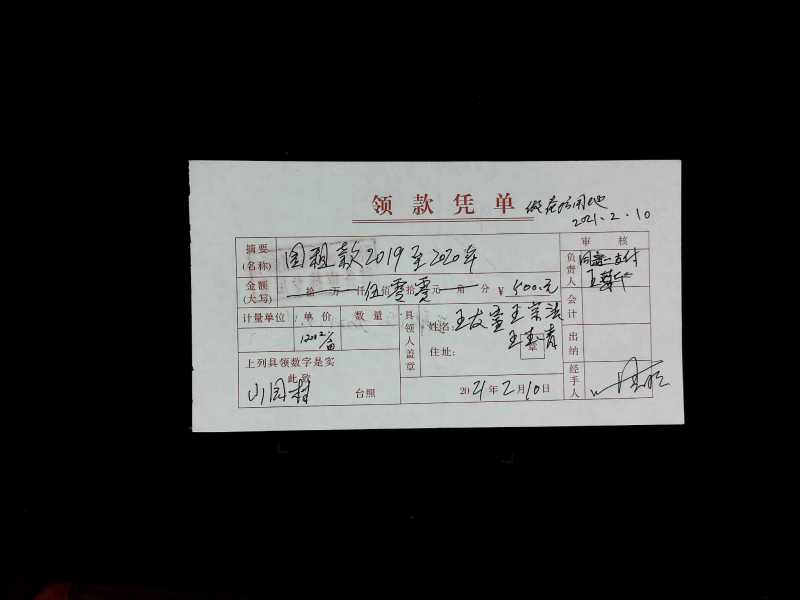 领款凭单
2021.2.10
审 核
摘要 (名称) 园租款2019至2020年
负责人 同意支付
金额 (大写) 拾 万 仟 伍佰零拾零元 角 分 ¥ 500.元
会计
计量单位 单价 数量
具领人盖章
姓名: 王友 王宗
王 青
住址: 章
出纳
上列具领数字是实
此致
台照
2021年2月10日
经手人